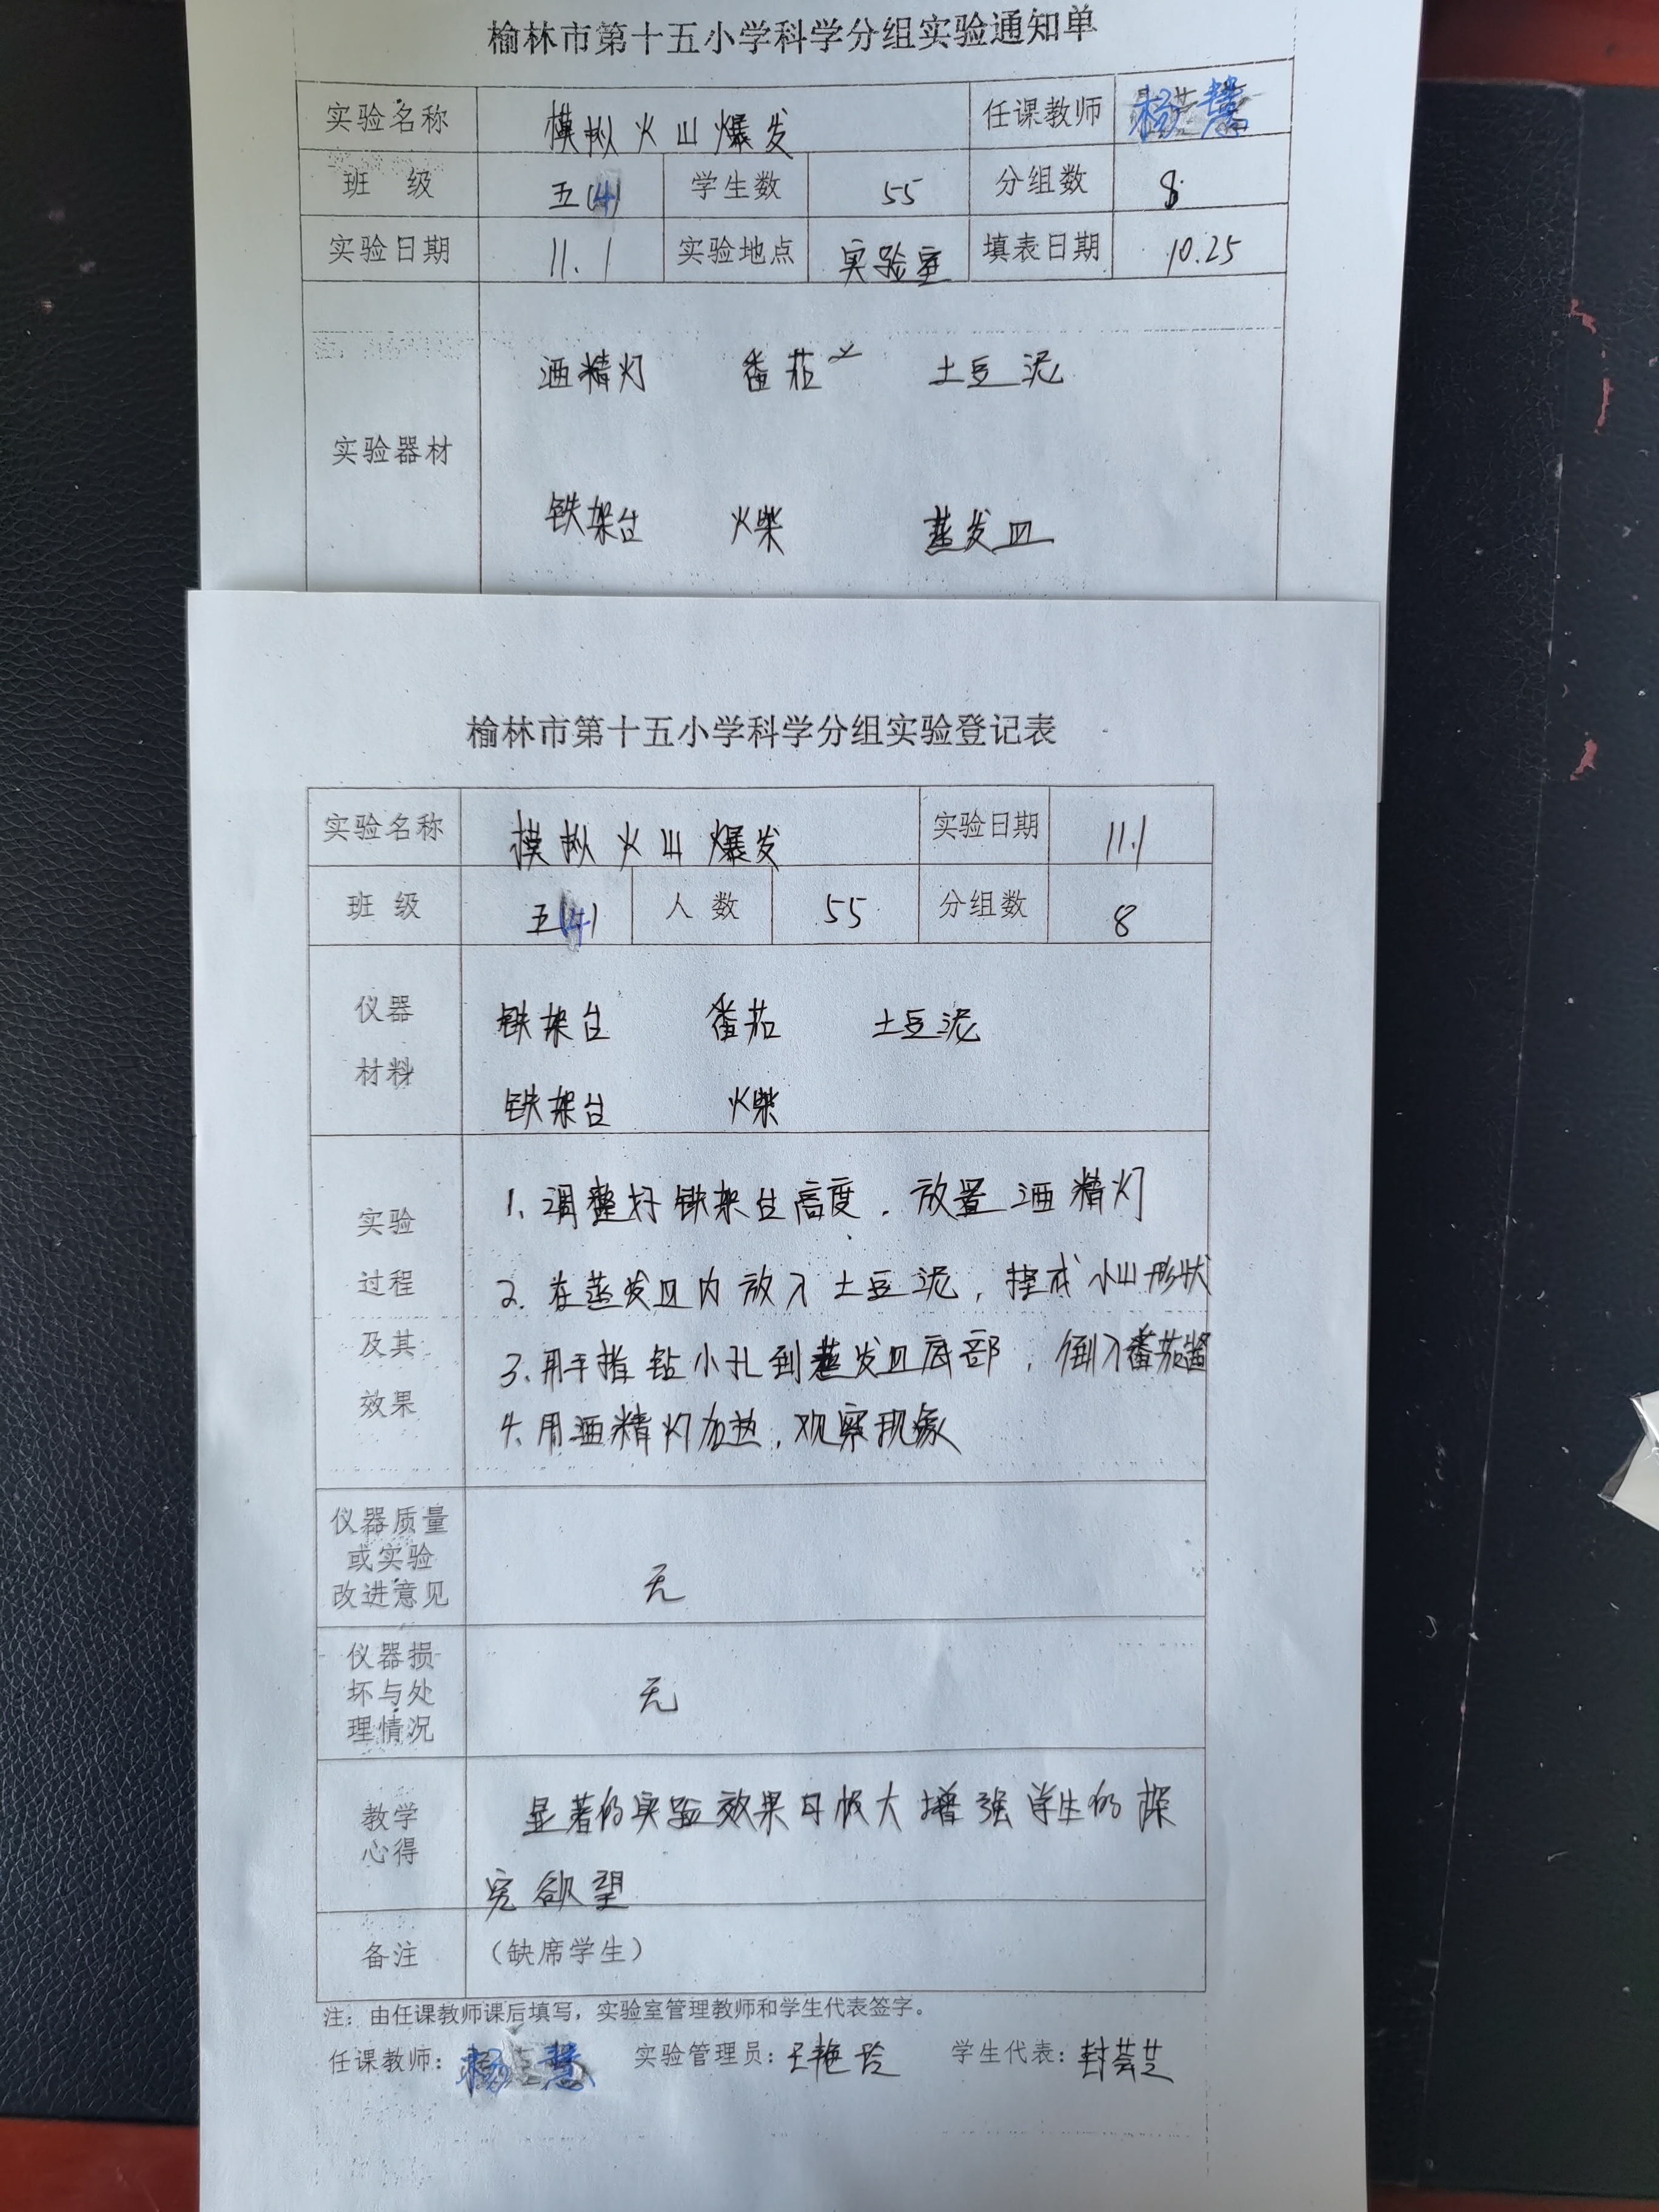 榆林市第十五小学科学分组实验通知单
实验名称 模拟火山爆发 任课教师 杨慧
班 级 五(4) 学生数 55 分组数 8
实验日期 11.1 实验地点 实验室 填表日期 10.25
酒精灯 番茄 土豆泥
实验器材
铁架台 火柴 蒸发皿
榆林市第十五小学科学分组实验登记表
实验名称 模拟火山爆发 实验日期 11.1
班 级 五(4) 人 数 55 分组数 8
仪器 铁架台 番茄 土豆泥
材料 铁架台 火柴
1. 调整好铁架台高度. 放置酒精灯
实验
过程 2. 在蒸发皿内放入土豆泥, 成小山形状
及其 3. 用手指钻小孔到蒸发皿底部, 倒入番茄酱
效果 4. 用酒精灯加热, 观察现象
仪器质量
或实验
改进意见 无
仪器损
坏与处 无
理情况
教学 显著的实验效果可极大增强学生的探
心得 究欲望
备注 (缺席学生)
注: 由任课教师课后填写, 实验室管理教师和学生代表签字。
任课教师: 杨慧 实验管理员: 王艳玲 学生代表: 封芸芝